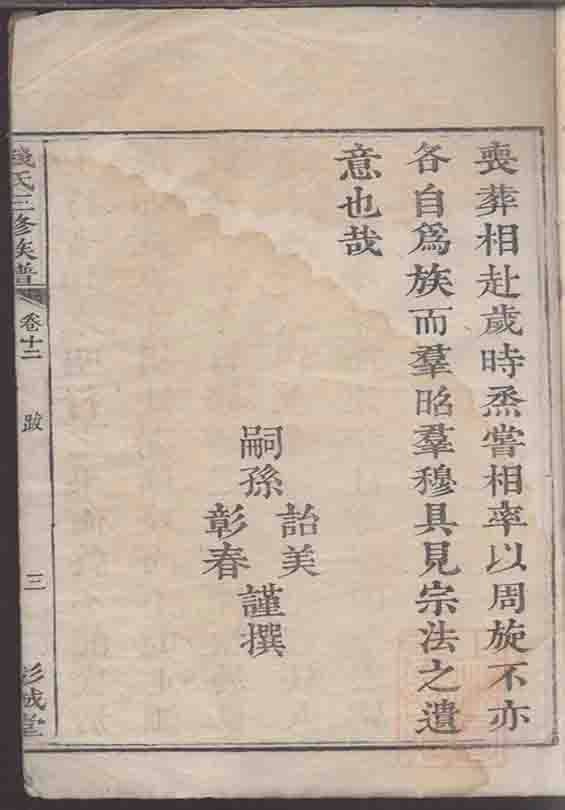 喪葬相赴歲時烝嘗相率以周旋不亦
各自爲族而羣昭羣穆具見宗法之遺
意也哉
嗣孫
詒美
彰春
謹撰
錢氏三修族譜
卷十二
跋
三
彭城堂